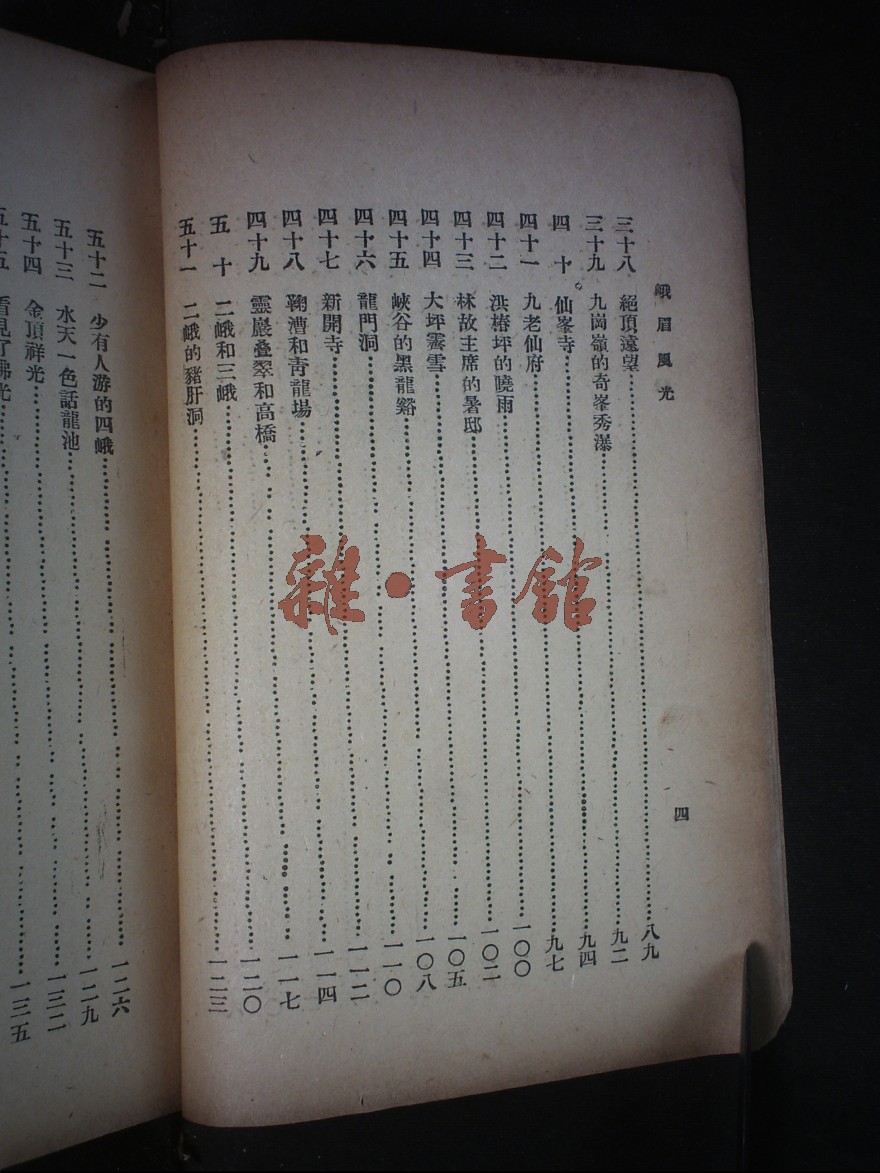 峨眉風光
四
三十八 絕頂遠望 八九
三十九 九崗嶺的奇峯秀瀑 九二
四十 仙峯寺 九四
四十一 九老仙府 九七
四十二 洪椿坪的曉雨 一〇〇
四十三 林故主席的暑邸 一〇二
四十四 大坪霽雪 一〇五
四十五 峽谷的黑龍谿 一〇八
四十六 龍門洞 一一〇
四十七 新開寺 一一二
四十八 鞠漕和青龍場 一一四
四十九 靈巖叠翠和高橋 一一七
五十 二峨和三峨 一二〇
五十一 二峨的豬肝洞 一二三
五十二 少有人游的四峨 一二六
五十三 水天一色話龍池 一二九
五十四 金頂祥光 一三二
五十五 看見了佛光 一三五
雜·書館